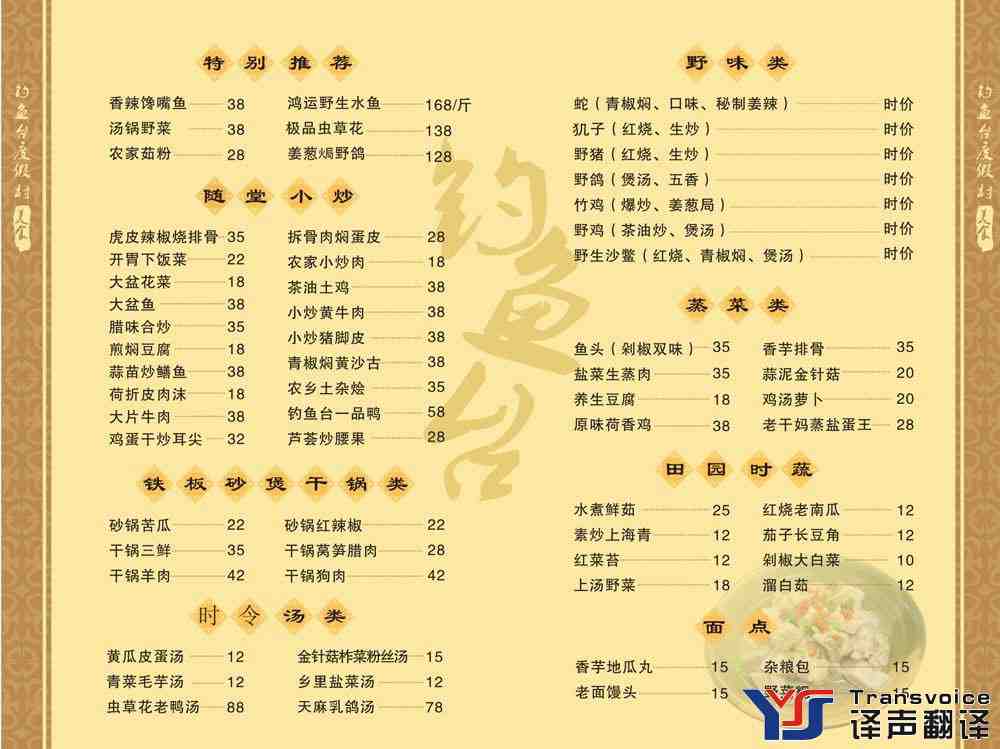 钓鱼台度假村 美食
特别推荐
香辣馋嘴鱼 38
汤锅野菜 38
农家茹粉 28
鸿运野生水鱼 168/斤
极品虫草花 138
姜葱焗野鸽 128
随堂小炒
虎皮辣椒烧排骨 35
开胃下饭菜 22
大盆花菜 18
大盆鱼 38
腊味合炒 35
煎焖豆腐 18
蒜苗炒鳝鱼 38
荷折皮肉沫 18
大片牛肉 38
鸡蛋干炒耳尖 32
拆骨肉焖蛋皮 28
农家小炒肉 18
茶油土鸡 38
小炒黄牛肉 38
小炒猪脚皮 38
青椒焖黄沙古 38
农乡土杂烩 35
钓鱼台一品鸭 58
芦荟炒腰果 28
铁板砂煲干锅类
砂锅苦瓜 22
干锅三鲜 35
干锅羊肉 42
砂锅红辣椒 22
干锅莴笋腊肉 28
干锅狗肉 42
时令汤类
黄瓜皮蛋汤 12
青菜毛芋汤 12
虫草花老鸭汤 88
金针菇柞菜粉丝汤 15
乡里盐菜汤 12
天麻乳鸽汤 78
钓鱼台
野味类
蛇（青椒焖、口味、秘制姜辣） 时价
犰子（红烧、生炒） 时价
野猪（红烧、生炒） 时价
野鸽（煲汤、五香） 时价
竹鸡（爆炒、姜葱局） 时价
野鸡（茶油炒、煲汤） 时价
野生沙鳖（红烧、青椒焖、煲汤） 时价
蒸菜类
鱼头（剁椒双味） 35
盐菜生蒸肉 35
养生豆腐 18
原味荷香鸡 38
香芋排骨 35
蒜泥金针菇 20
鸡汤萝卜 20
老干妈蒸盐蛋王 28
田园时蔬
水煮鲜菇 25
素炒上海青 12
红菜苔 12
上汤野菜 18
红烧老南瓜 12
茄子长豆角 12
剁椒大白菜 10
溜白茹 12
面点
香芋地瓜丸 15
老面馒头 15
杂粮包 15
15
钓鱼台度假村 美食
YS Transvoice
译声翻译